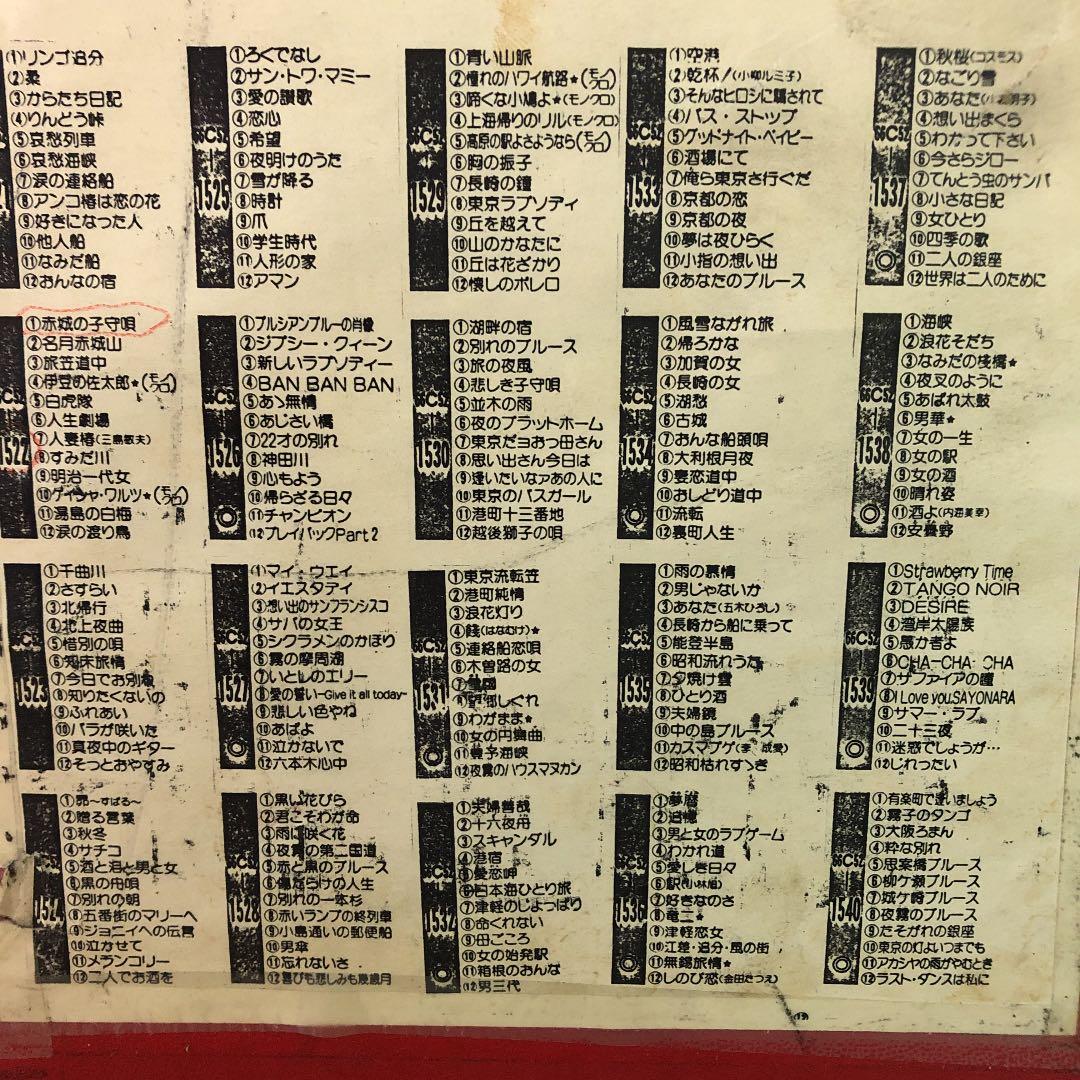 ①リンゴ追分
②柔
③からたち日記
④りんどう峠
⑤哀愁列車
⑥哀愁海峡
⑦涙の連絡船
⑧アンコ椿は恋の花
⑨好きになった人
⑩他人船
⑪なみだ船
⑫おんなの宿
66C52
1525
①ろくでなし
②サン・トワ・マミー
③愛の讃歌
④恋心
⑤希望
⑥夜明けのうた
⑦雪が降る
⑧時計
⑨爪
⑩学生時代
⑪人形の家
⑫アマン
66C52
1529
①青い山脈
②憧れのハワイ航路★(モノクロ)
③啼くな小鳩よ★(モノクロ)
④上海帰りのリル(モノクロ)
⑤高原の駅よさようなら(モノクロ)
⑥胸の振子
⑦長崎の鐘
⑧東京ラプソディ
⑨丘を越えて
⑩山のかなたに
⑪丘は花ざかり
⑫懐しのボレロ
66C52
1533
①空港
②乾杯!(小柳ルミ子)
③そんなヒロシに騙されて
④バス・ストップ
⑤グッドナイト・ベイビー
⑥酒場にて
⑦俺ら東京さ行ぐだ
⑧京都の恋
⑨京都の夜
⑩夢は夜ひらく
⑪小指の想い出
⑫あなたのブルース
66C52
1537
①秋桜(コスモス)
②なごり雪
③あなた
④想い出まくら
⑤わかって下さい
⑥今さらジロー
⑦てんとう虫のサンバ
⑧小さな日記
⑨女ひとり
⑩四季の歌
⑪二人の銀座
⑫世界は二人のために
6C52
1522
①赤城の子守唄
②名月赤城山
③旅笠道中
④伊豆の佐太郎★(モノクロ)
⑤白虎隊
⑥人生劇場
⑦人妻椿(三島敏夫)
⑧すみだ川
⑨明治一代女
⑩ゲイシャ・ワルツ★(モノクロ)
⑪湯島の白梅
⑫涙の渡り鳥
66C52
1526
①プルシアンブルーの肖像
②ジプシー・クィーン
③新しいラプソディー
④BAN BAN BAN
⑤あゝ無情
⑥あじさい橋
⑦22才の別れ
⑧神田川
⑨心もよう
⑩帰らざる日々
⑪チャンピオン
⑫プレイバックPart2
66C52
1530
①湖畔の宿
②別れのブルース
③旅の夜風
④悲しき子守唄
⑤並木の雨
⑥夜のプラットホーム
⑦東京だョおっ母さん
⑧思い出さん今日は
⑨逢いたいなァあの人に
⑩東京のバスガール
⑪港町十三番地
⑫越後獅子の唄
66C52
1534
①風雪ながれ旅
②帰ろかな
③加賀の女
④長崎の女
⑤湖愁
⑥古城
⑦おんな船頭唄
⑧大利根月夜
⑨妻恋道中
⑩おしどり道中
⑪流転
⑫裏町人生
66C52
1538
①海峡
②浪花そだち
③なみだの桟橋★
④夜叉のように
⑤あばれ太鼓
⑥男華★
⑦女の一生
⑧女の駅
⑨女の酒
⑩晴れ姿
⑪酒よ(内海美幸)
⑫安曇野
66C52
1523
①千曲川
②さすらい
③北帰行
④北上夜曲
⑤惜別の唄
⑥知床旅情
⑦今日でお別れ
⑧知りたくないの
⑨ふれあい
⑩バラが咲いた
⑪真夜中のギター
⑫そっとおやすみ
66C52
1527
①マイ・ウエイ
②イエスタデイ
③想い出のサンフランシスコ
④サバの女王
⑤シクラメンのかほり
⑥霧の摩周湖
⑦いとしのエリー
⑧愛の誓い~Give it all today~
⑨悲しい色やね
⑩あばよ
⑪泣かないで
⑫六本木心中
66C52
1531
①東京流転笠
②港町純情
③浪花灯り
④餞(はなむけ)★
⑤連絡船恋唄
⑥木曽路の女
⑦雪国
⑧望郷しぐれ
⑨わがまま★
⑩女の円舞曲
⑪豊予海峡
⑫夜霧のハウスマヌカン
66C52
1535
①雨の慕情
②男じゃないか
③あなた(五木ひろし)
④長崎から船に乗って
⑤能登半島
⑥昭和流れうた
⑦夕焼け雲
⑧ひとり酒
⑨夫婦鏡
⑩中の島ブルース
⑪カスマプゲ(李成愛)
⑫昭和枯れすゝき
66C52
1539
①Strawberry Time
②TANGO NOIR
③DESIRE
④湾岸太陽族
⑤愚か者よ
⑥CHA-CHA-CHA
⑦サファイアの瞳
⑧I Love you,SAYONARA
⑨サマー・ラブ
⑩二十三夜
⑪迷惑でしょうが…
⑫じれったい
66C52
1524
①昴~すばる~
②贈る言葉
③秋冬
④サチコ
⑤酒と泪と男と女
⑥黒の舟唄
⑦別れの朝
⑧五番街のマリーへ
⑨ジョニイへの伝言
⑩泣かせて
⑪メランコリー
⑫二人でお酒を
66C52
1528
①黒い花びら
②君こそわが命
③雨に咲く花
④夜霧の第二国道
⑤赤と黒のブルース
⑥傷だらけの人生
⑦別れの一本杉
⑧赤いランプの終列車
⑨小島通いの郵便船
⑩男傘
⑪忘れないさ
⑫喜びも悲しみも幾歳月
66C52
1532
①夫婦善哉
②十六夜舟
③スキャンダル
④港宿
⑤愛恋岬
⑥日本海ひとり旅
⑦津軽のじょっぱり
⑧命くれない
⑨母ごころ
⑩女の始発駅
⑪箱根のおんな
⑫男三代
66C52
1536
①夢暦
②追憶
③男と女のラブゲーム
④わかれ道
⑤愛しき日々
⑥駅(小林旭)
⑦好きなのさ
⑧竜二★
⑨津軽恋女
⑩江差・追分・風の街
⑪無錫旅情★
⑫しのび恋(金田たつえ)
66C52
1540
①有楽町で逢いましょう
②霧子のタンゴ
③大阪ろまん
④粋な別れ
⑤思案橋ブルース
⑥柳ケ瀬ブルース
⑦城ケ崎ブルース
⑧夜霧のブルース
⑨たそがれの銀座
⑩東京の灯よいつまでも
⑪アカシヤの雨がやむとき
⑫ラスト・ダンスは私に